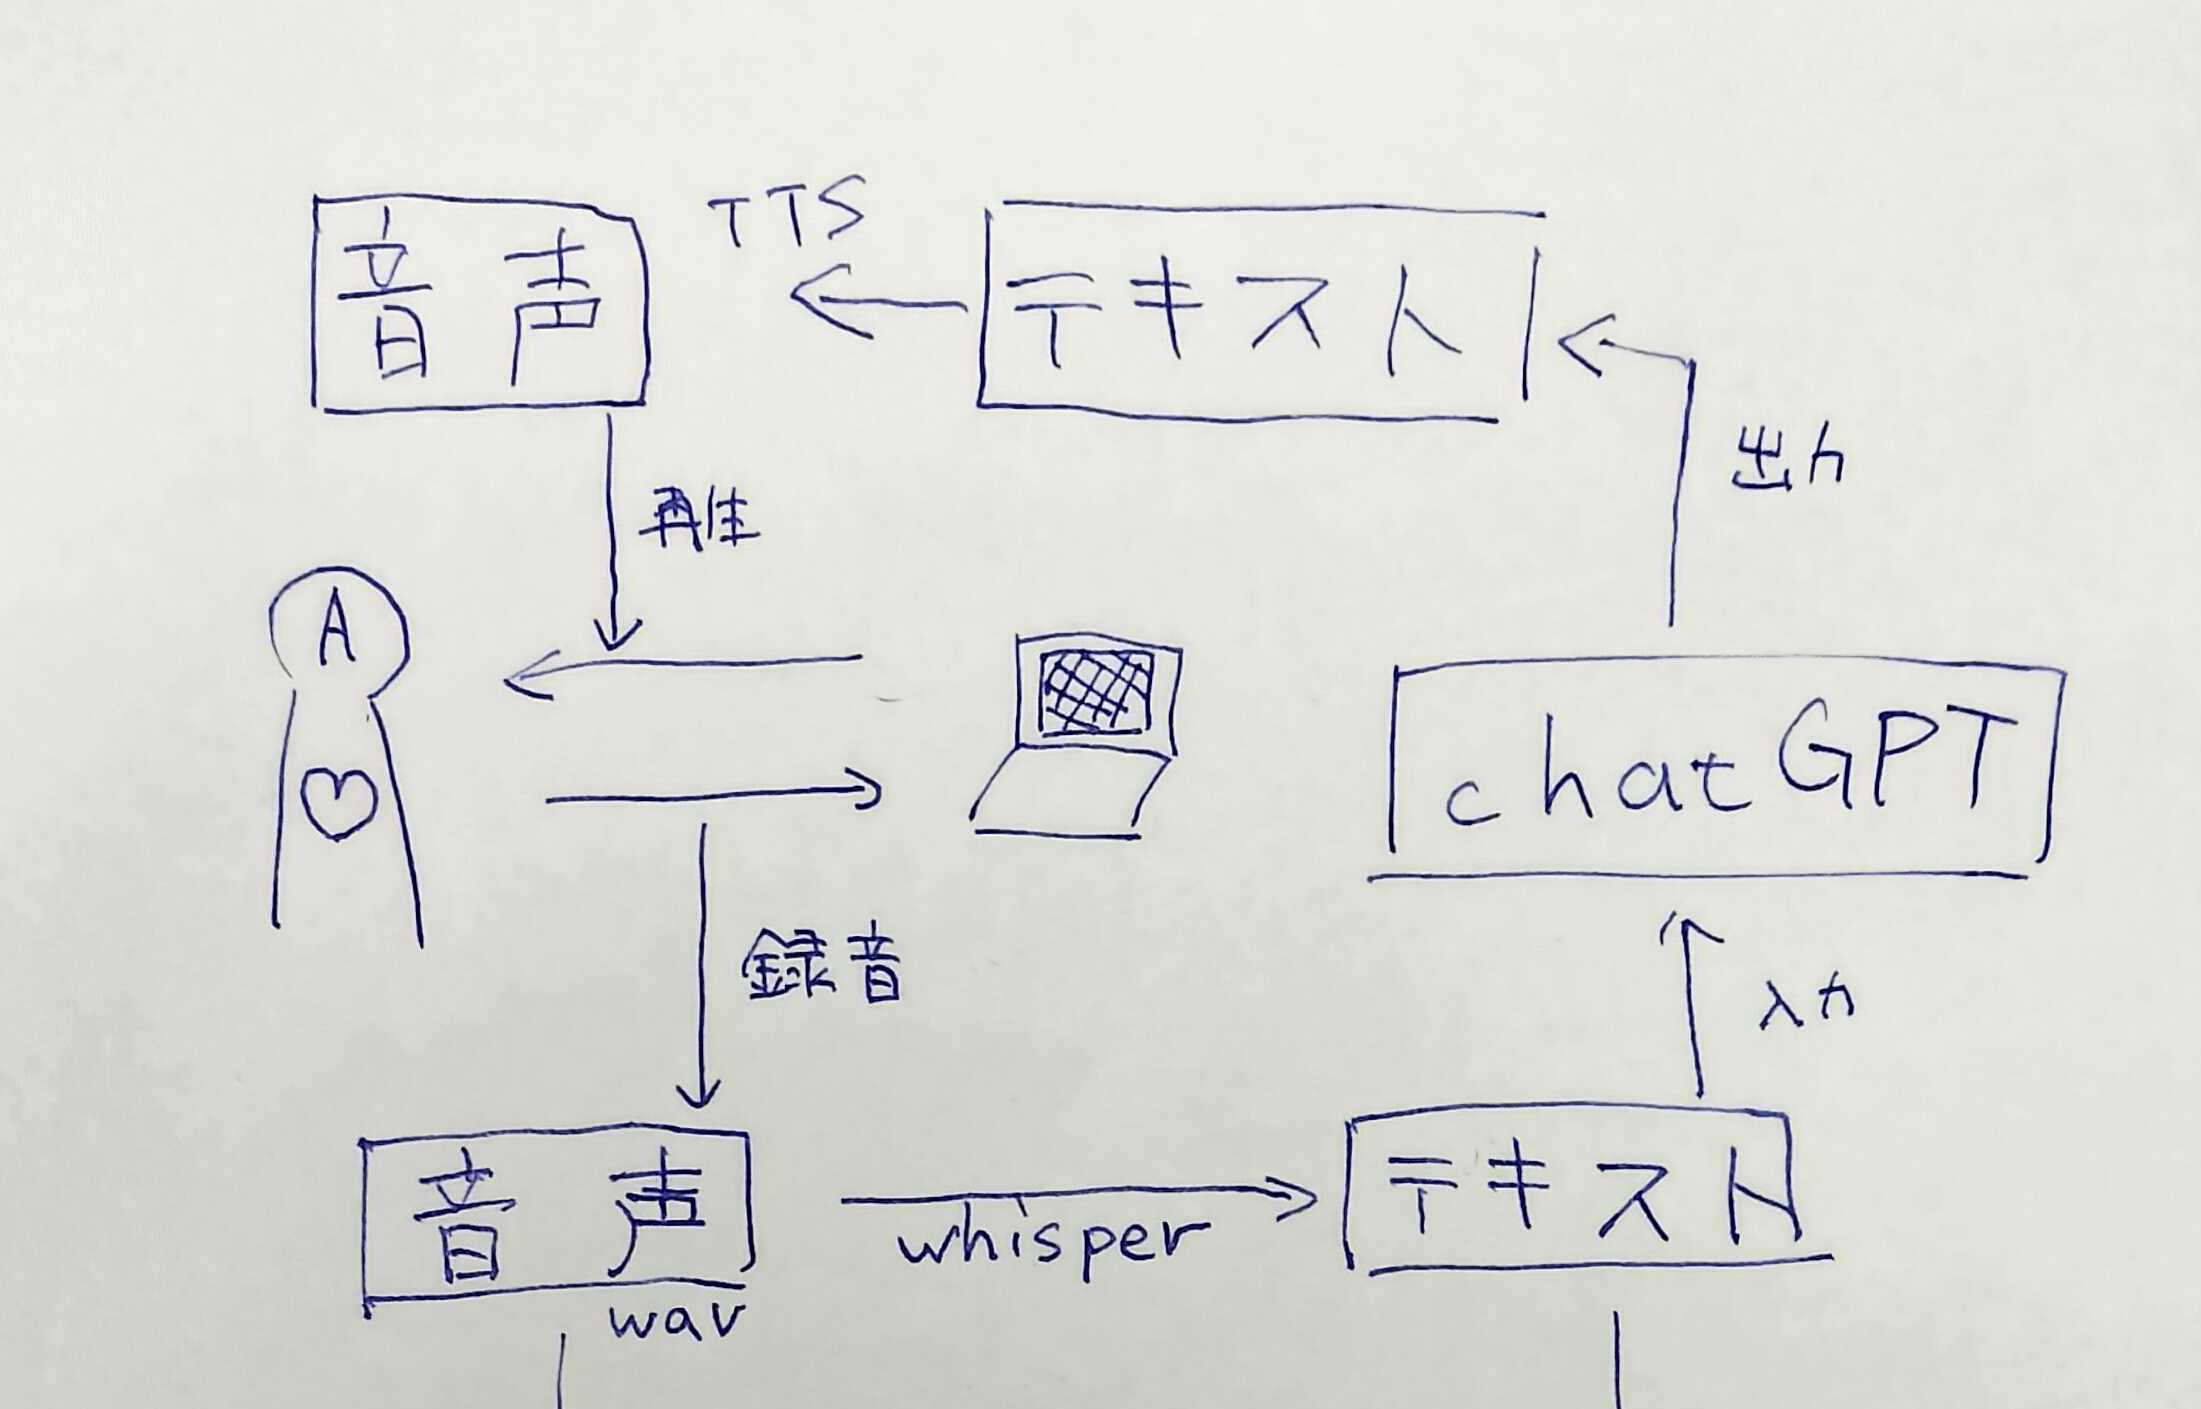 音声
TTS
テキスト
出力
再生
A
chatGPT
録音
入力
音声
wav
whisper
テキスト